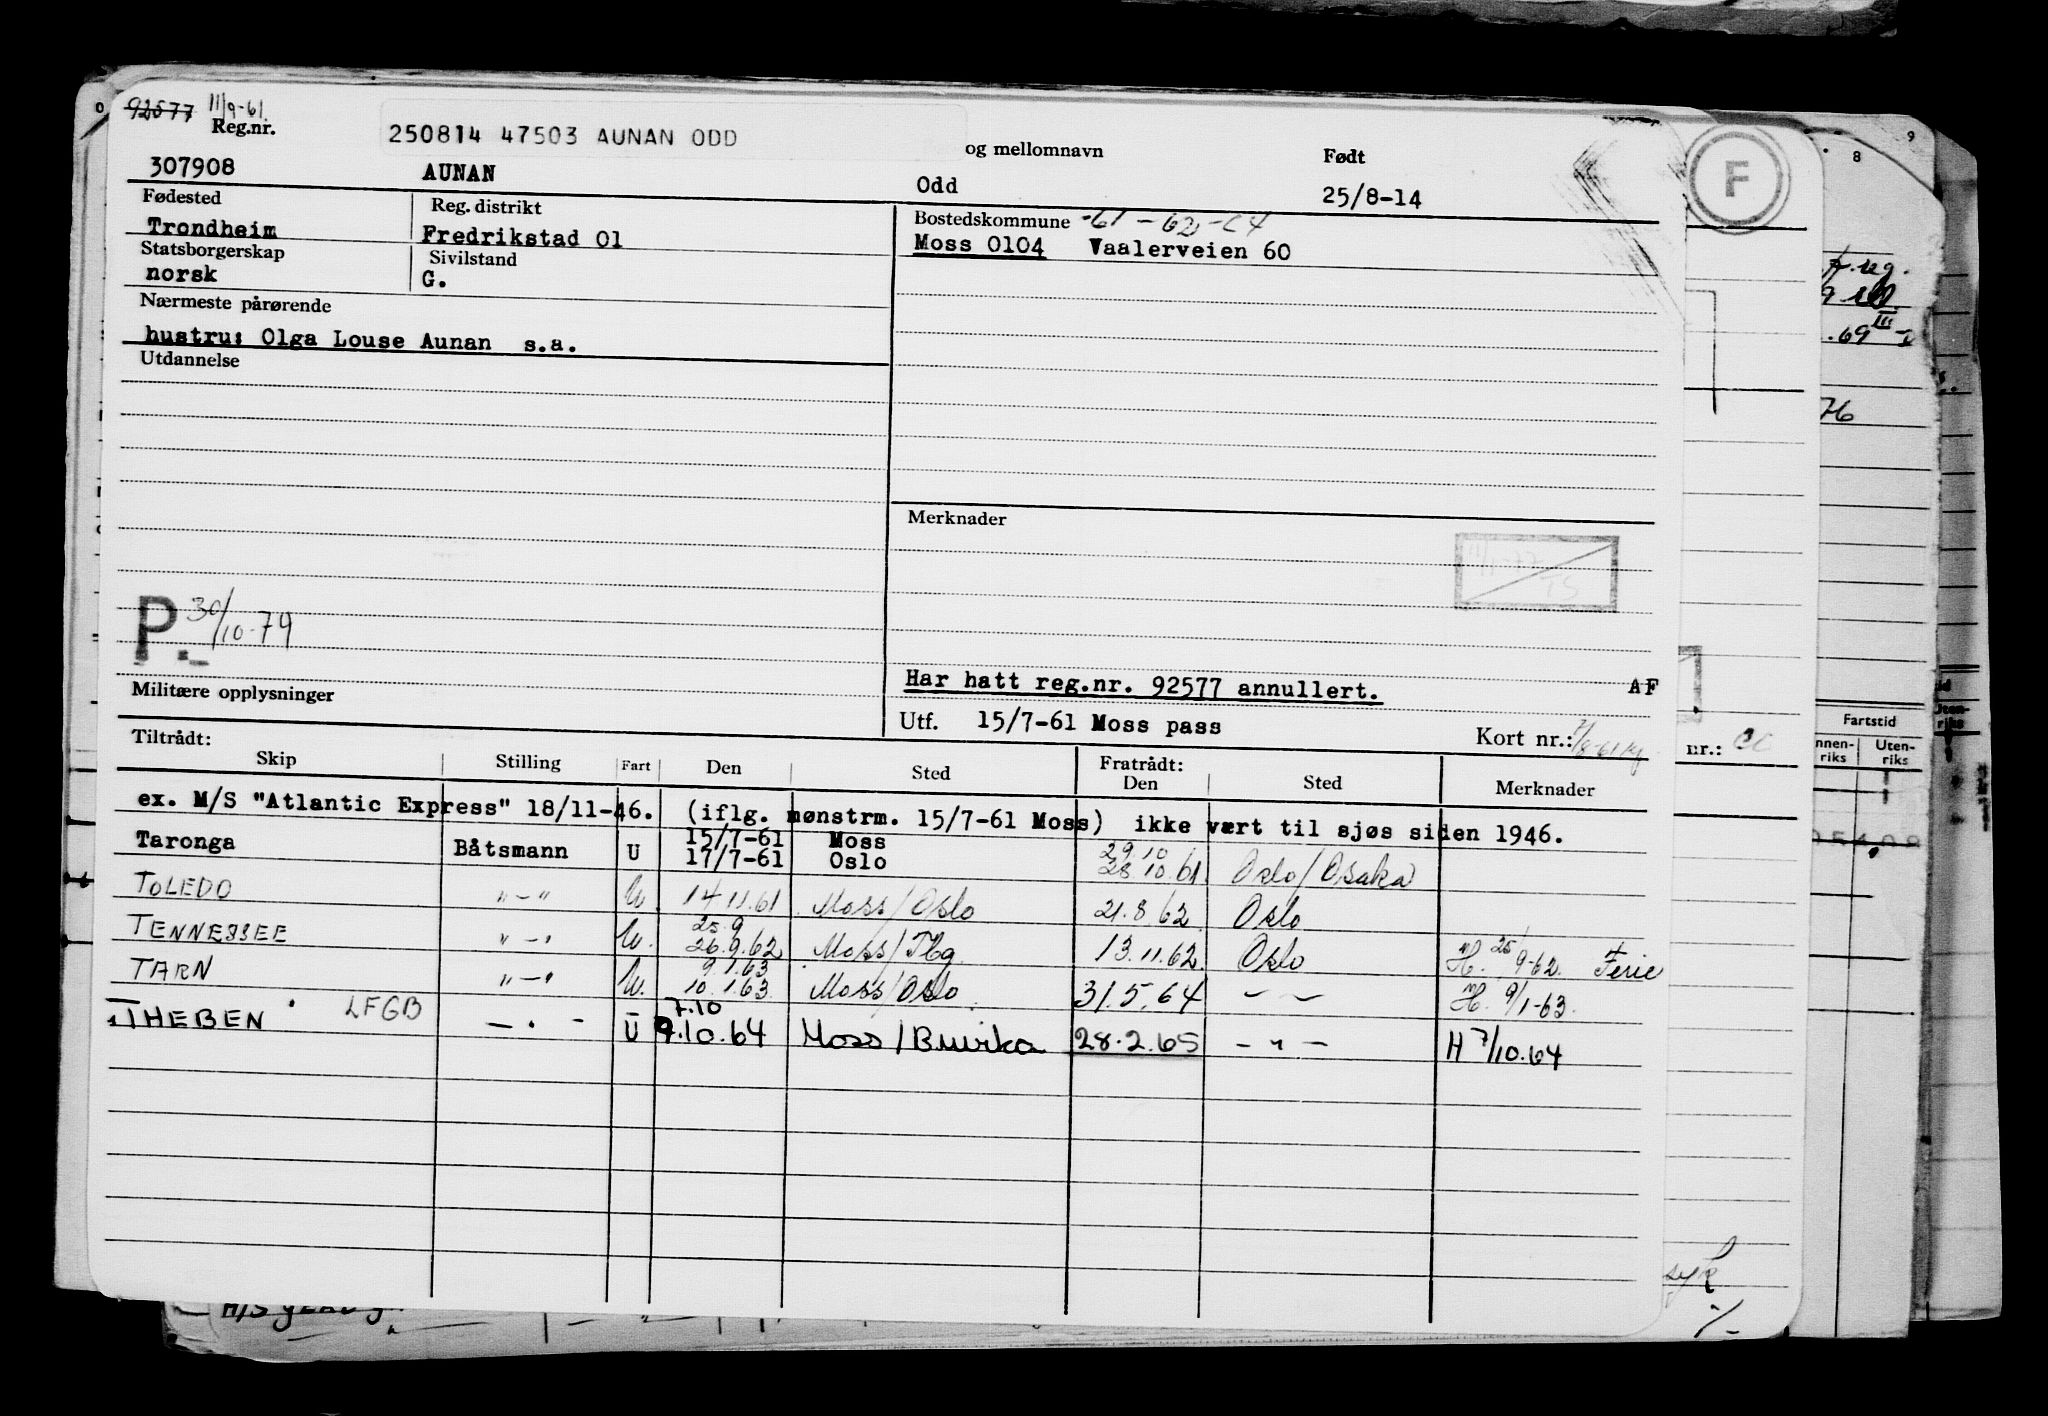 92577 11/9-61.
Reg.nr.
250814 47503 AUNAN ODD
og mellomnavn
Født
307908 AUNAN Odd 25/8-14
Fødested Reg. distrikt Bostedskommune -61-62-64
Trondheim Fredrikstad 01 Moss 0104 Vaalerveien 60
Statsborgerskap Sivilstand
norsk G.
Nærmeste pårørende
hustru: Olga Louse Aunan s.a.
Utdannelse
Merknader
P. 30/10-79
Militære opplysninger
Har hatt reg.nr. 92577 annullert. AF
Utf. 15/7-61 Moss pass Kort nr.:
Tiltrådt: Fratrådt:
Skip Stilling Fart Den Sted Den Sted Merknader
ex. M/S "Atlantic Express" 18/11-46. (iflg. mønstrm. 15/7-61 Moss) ikke vært til sjøs siden 1946.
Taronga Båtsmann U 15/7-61 Moss 29 10
17/7-61 Oslo 28.10.61 Oslo/Osaka
TOLEDO "-" U. 14.11.61 Moss/Oslo 21.8.62 Oslo
TENNESSEE "-" U. 25.9 26.9.62 Moss/Tbg. 13.11.62. Oslo H. 25/9-62. Ferie
TARN "-" U. 9.1.63 10.1.63. Moss/Oslo 31.5.64 -"- H. 9/1-63.
THEBEN LFGB -"- U 7.10 9.10.64 Moss/ 28.2.65 -"- H 7/10.64
F
nr.:
Fartstid
Innen-riks Uten-riks
8
9
76